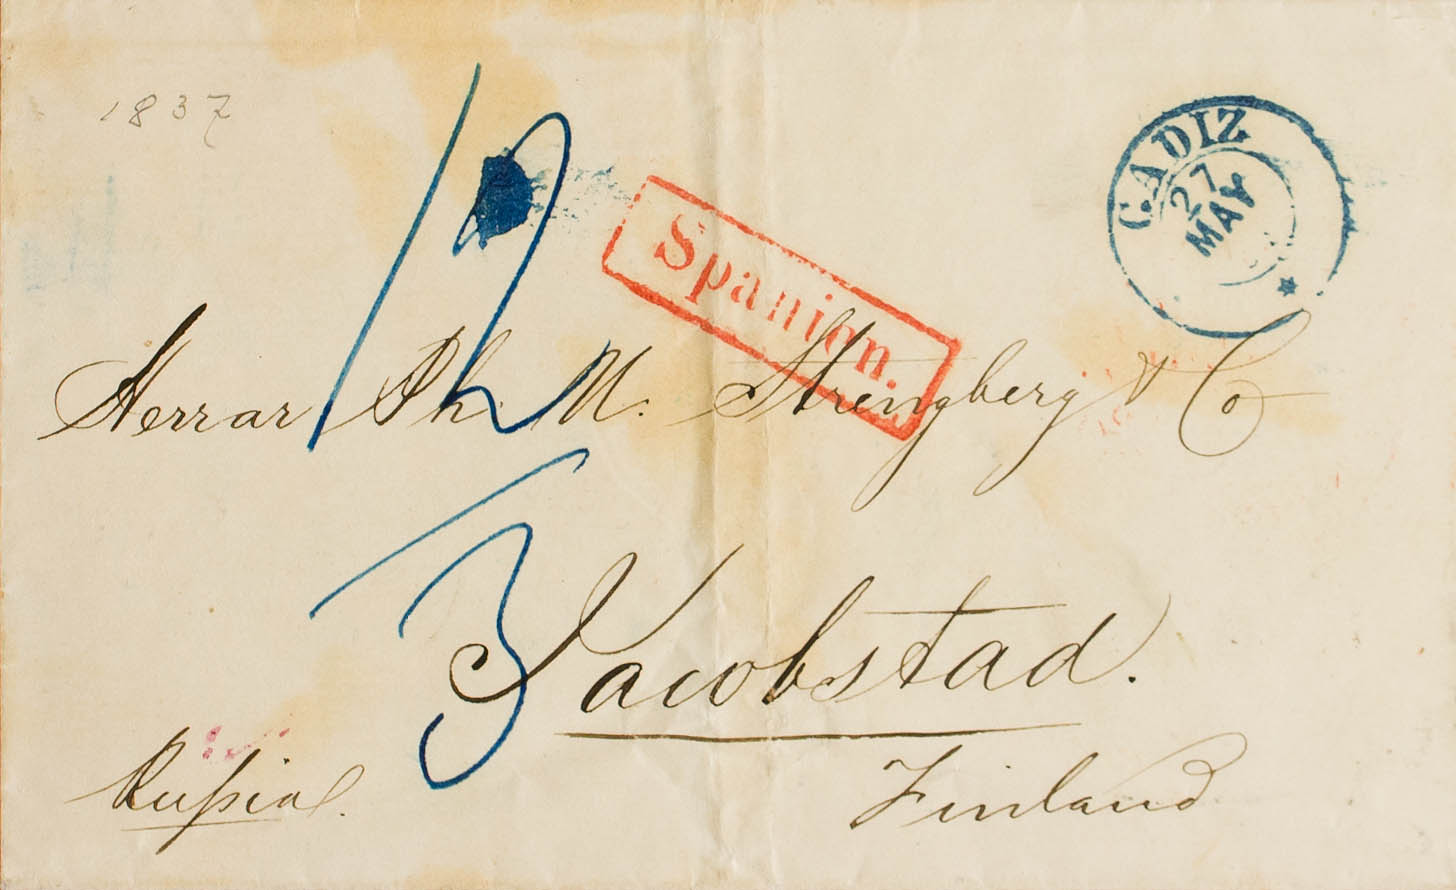 1837
CADIZ
27
MAY
12
Spanien.
Herrar Ph. M. Strengberg & Co
3
Jacobstad.
Rußia
Finland